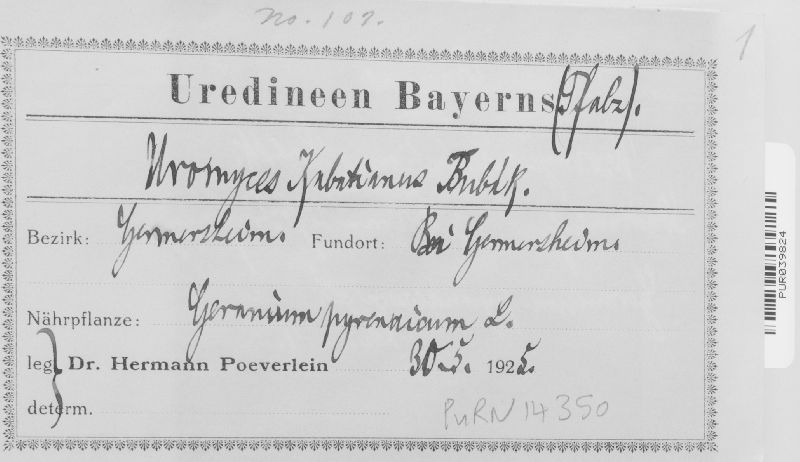 No. 107.
1
Uredineen Bayerns (Pfalz).
Uromyces Kabatianus Bubák.
Bezirk: Germersheim. Fundort: Bei Germersheim.
Nährpflanze: Geranium pyrenaicum L.
leg. Dr. Hermann Poeverlein 30.5. 1925.
determ.
PURN 14350
PUR039824